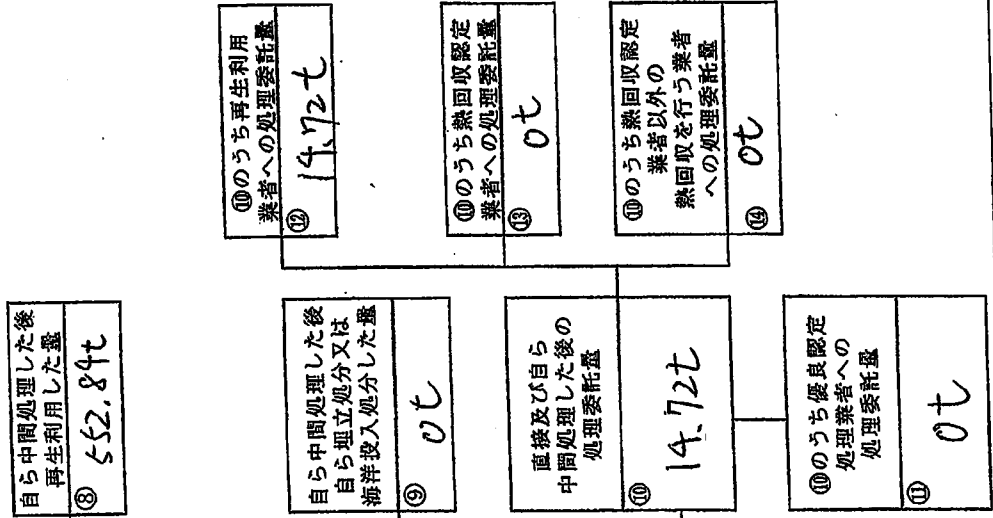 自ら中間処理した後
再生利用した量
⑧ 552.84t
自ら中間処理した後
自ら埋立処分又は
海洋投入処分した量
⑨ 0t
直接及び自ら
中間処理した後の
処理委託量
⑩ 14.72t
⑩のうち優良認定
処理業者への
処理委託量
⑪ 0t
⑩のうち再生利用
業者への処理委託量
⑫ 14.72t
⑩のうち熱回収認定
業者への処理委託量
⑬ 0t
⑩のうち熱回収認定
業者以外の
熱回収を行う業者
への処理委託量
⑭ 0t